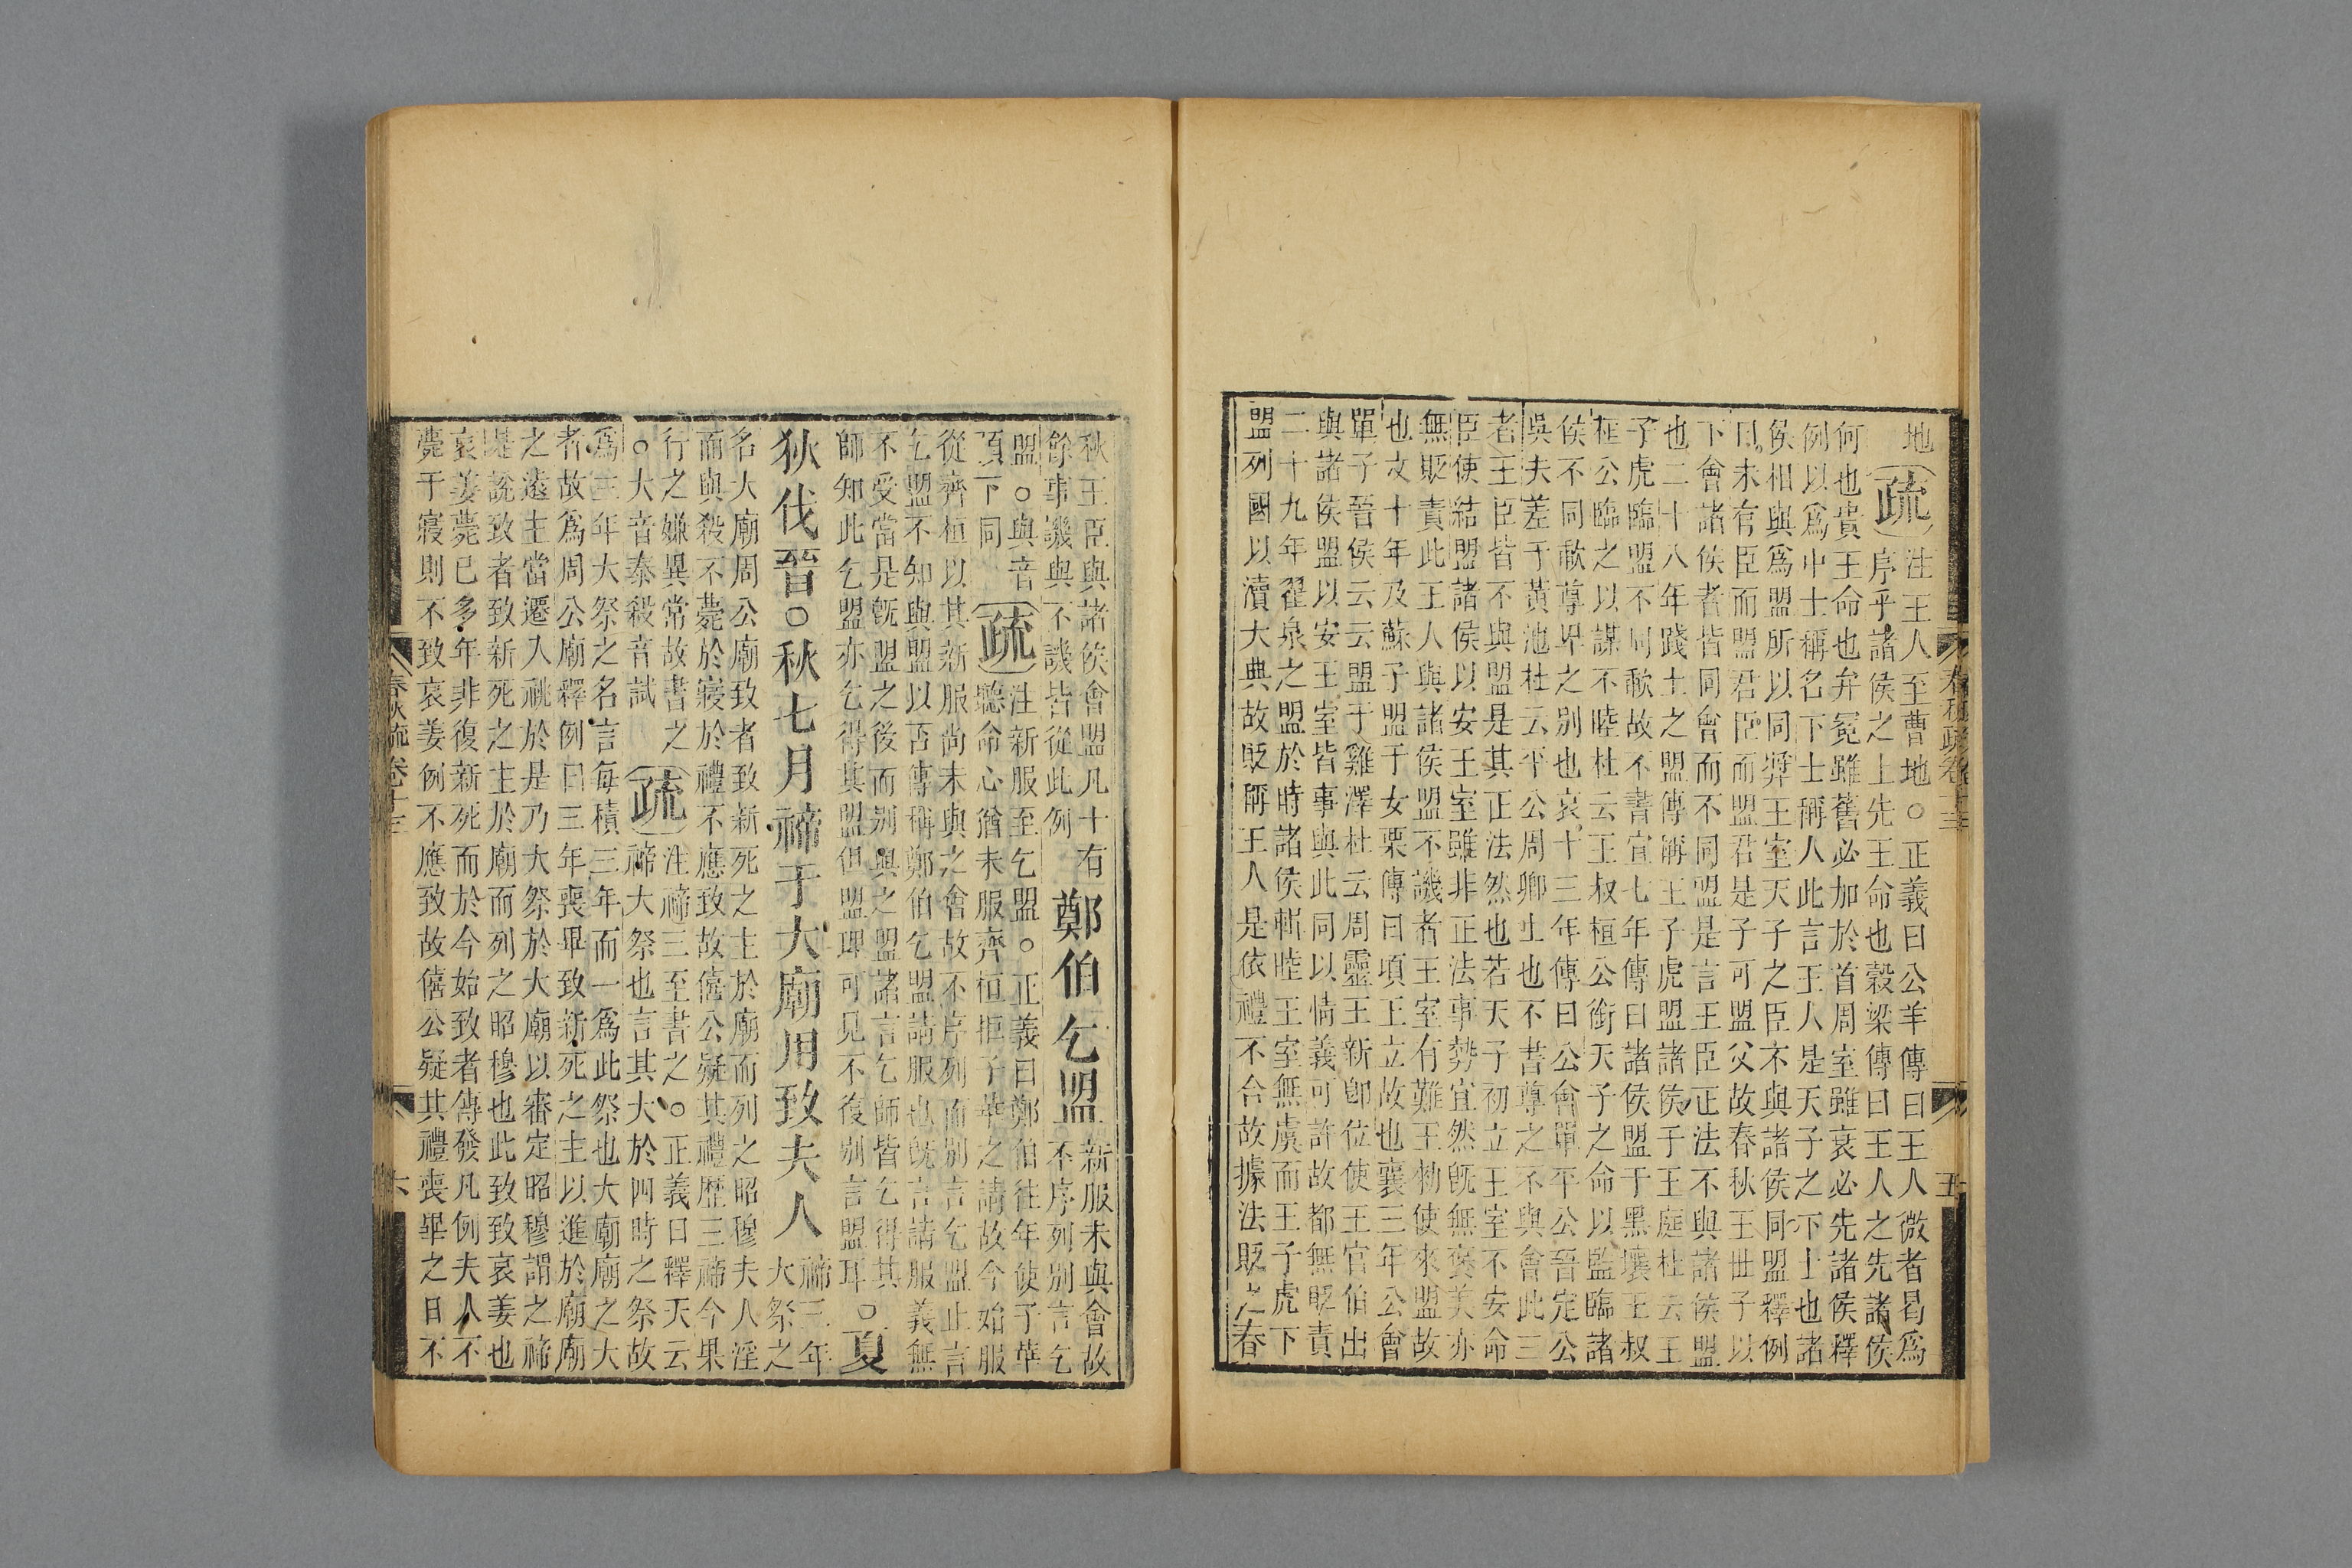 地
疏
注王人至曹地○正義曰公羊傳曰王人微者曷爲
序乎諸侯之上先王命也穀梁傳曰王人之先諸侯
何也貴王命也弁冕雖舊必加於首周室雖衰必先諸侯釋
例以爲中士稱名下士稱人此言王人是天子之下士也諸
侯相與爲盟所以同獎王室天子之臣不與諸侯同盟釋例
曰未有臣而盟君臣而盟君是子可盟父故春秋王世子以
下會諸侯者皆同會而不同盟是言王臣正法不與諸侯盟
也二十八年踐土之盟傳稱王子虎盟諸侯于王庭杜云王
子虎臨盟不同歃故不書宣七年傳曰諸侯盟于黑壤王叔
桓公臨之以謀不睦杜云王叔桓公銜天子之命以監臨諸
侯不同歃尊卑之別也哀十三年傳曰公會單平公晉定公
吳夫差于黃池杜云平公周卿士也不書尊之不與會此三
者王臣皆不與盟是其正法然也若天子初立王室不安命
臣使結盟諸侯以安王室雖非正法事勢宜然旣無褒美亦
無貶責此王人與諸侯盟不譏者王室有難王勑使來盟故
也文十年及蘇子盟于女栗傳曰頃王立故也襄三年公會
單子晉侯云云盟于雞澤杜云周靈王新卽位使王官伯出
與諸侯盟以安王室皆事與此同以情義可許故都無貶責
二十九年翟泉之盟於時諸侯輯睦王室無虞而王子虎下
盟列國以瀆大典故貶稱王人是依禮不合故據法貶之春
春秋疏卷十三
五
秋王臣與諸侯會盟凡十有
餘事譏與不譏皆從此例
鄭伯乞盟
新服未與會故
不序列別言乞
盟○與音
預下同
疏
注新服至乞盟○正義曰鄭伯往年使子華
聽命心猶未服齊桓拒子華之請故今始服
從齊桓以其新服尚未與之會故不序列而別言乞盟止言
乞盟不知與盟以否傳稱鄭伯乞盟請服也旣言請服義無
不受當是旣盟之後而別與之盟諸言乞師皆乞得其
師知此乞盟亦乞得其盟但盟理可見不復別言盟耳
○夏
狄伐晉○秋七月禘于大廟用致夫人
禘三年
大祭之
名大廟周公廟致者致新死之主於廟而列之昭穆夫人淫
而與殺不薨於寢於禮不應致故僖公疑其禮歷三禘今果
行之嫌異常故書之
○大音泰殺音試
疏
注禘三至書之○正義曰釋天云
禘大祭也言其大於四時之祭故
爲三年大祭之名言每積三年而一爲此祭也大廟廟之大
者故爲周公廟釋例曰三年喪畢致新死之主以進於廟廟
之遠主當遷入祧於是乃大祭於大廟以審定昭穆謂之禘
是說致者致新死之主於廟而列之昭穆也此致致哀姜也
哀姜薨已多年非復新死而於今始致者傳發凡例夫人不
薨于寢則不致哀姜例不應致故僖公疑其禮喪畢之日不
春秋疏卷十三
六